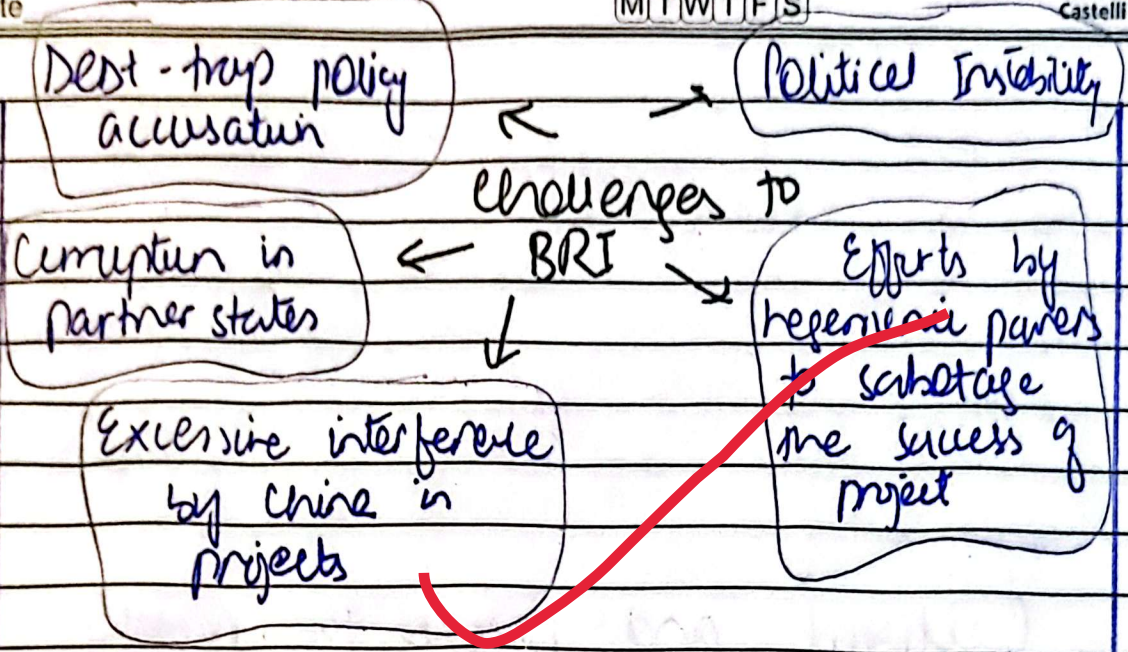 te
M T W T F S
Castelli
Debt-trap policy
accusation
Political Instability
Challenges to
BRI
Corruption in
partner states
Efforts by
hegemonic powers
to sabotage
the success of
project
Excessive interference
by China in
projects